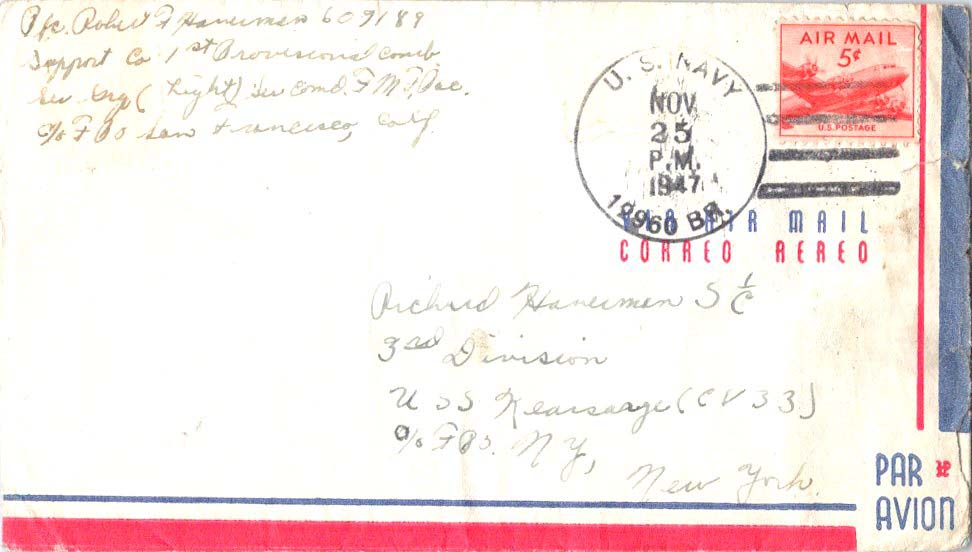 Pfc. Robert F Hanerman 609189
Support Co 1st Provisional Comb
Ser Grp (Light) Ser Comd. FMFPac.
c/o FPO San Francisco, Calif.
AIR MAIL
5¢
U.S. POSTAGE
U. S. NAVY
NOV
25
P.M.
1947
BR.
AIR MAIL
CORREO AEREO
Richard Hanerman S 1/c
3rd Division
USS Kearsarge (CV 33)
c/o FPO. NY,
New York.
PAR
AVION